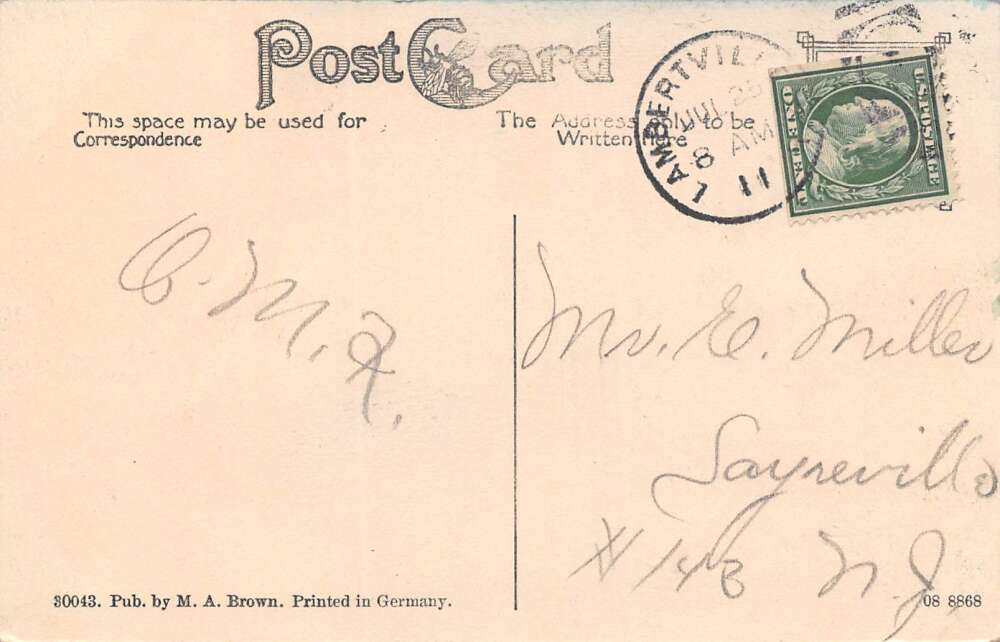 Post Card
This space may be used for
Correspondence
The Address only to be
Written here
LAMBERTVIL
JUL 25
8 AM
11
U.S. POSTAGE
ONE CENT
C. M. F.
Mr. E. Miller
Sayreville
# 143 N. J.
30043. Pub. by M. A. Brown. Printed in Germany.
08 8868